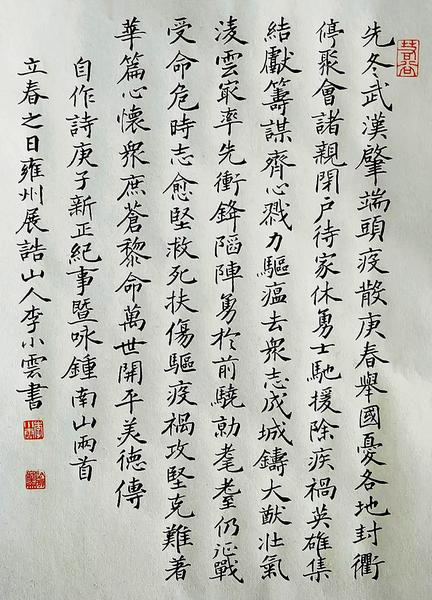 先冬武漢肇端頭疫散庚春舉國憂各地封衢
停聚會諸親閉戶待家休勇士馳援除疾禍英雄集
結獻籌謀齊心戮力驅瘟去衆志成城鑄大猷壯氣
淩雲冣率先衝鋒陷陣勇於前驍勍耄耋仍征戰
受命危時志愈堅救死扶傷驅疫禍攻堅克難著
華篇心懷衆庶蒼黎命萬世開平美德傳
自作詩庚子新正紀事暨咏鍾南山兩首
立春之日雍州展誥山人李小雲書